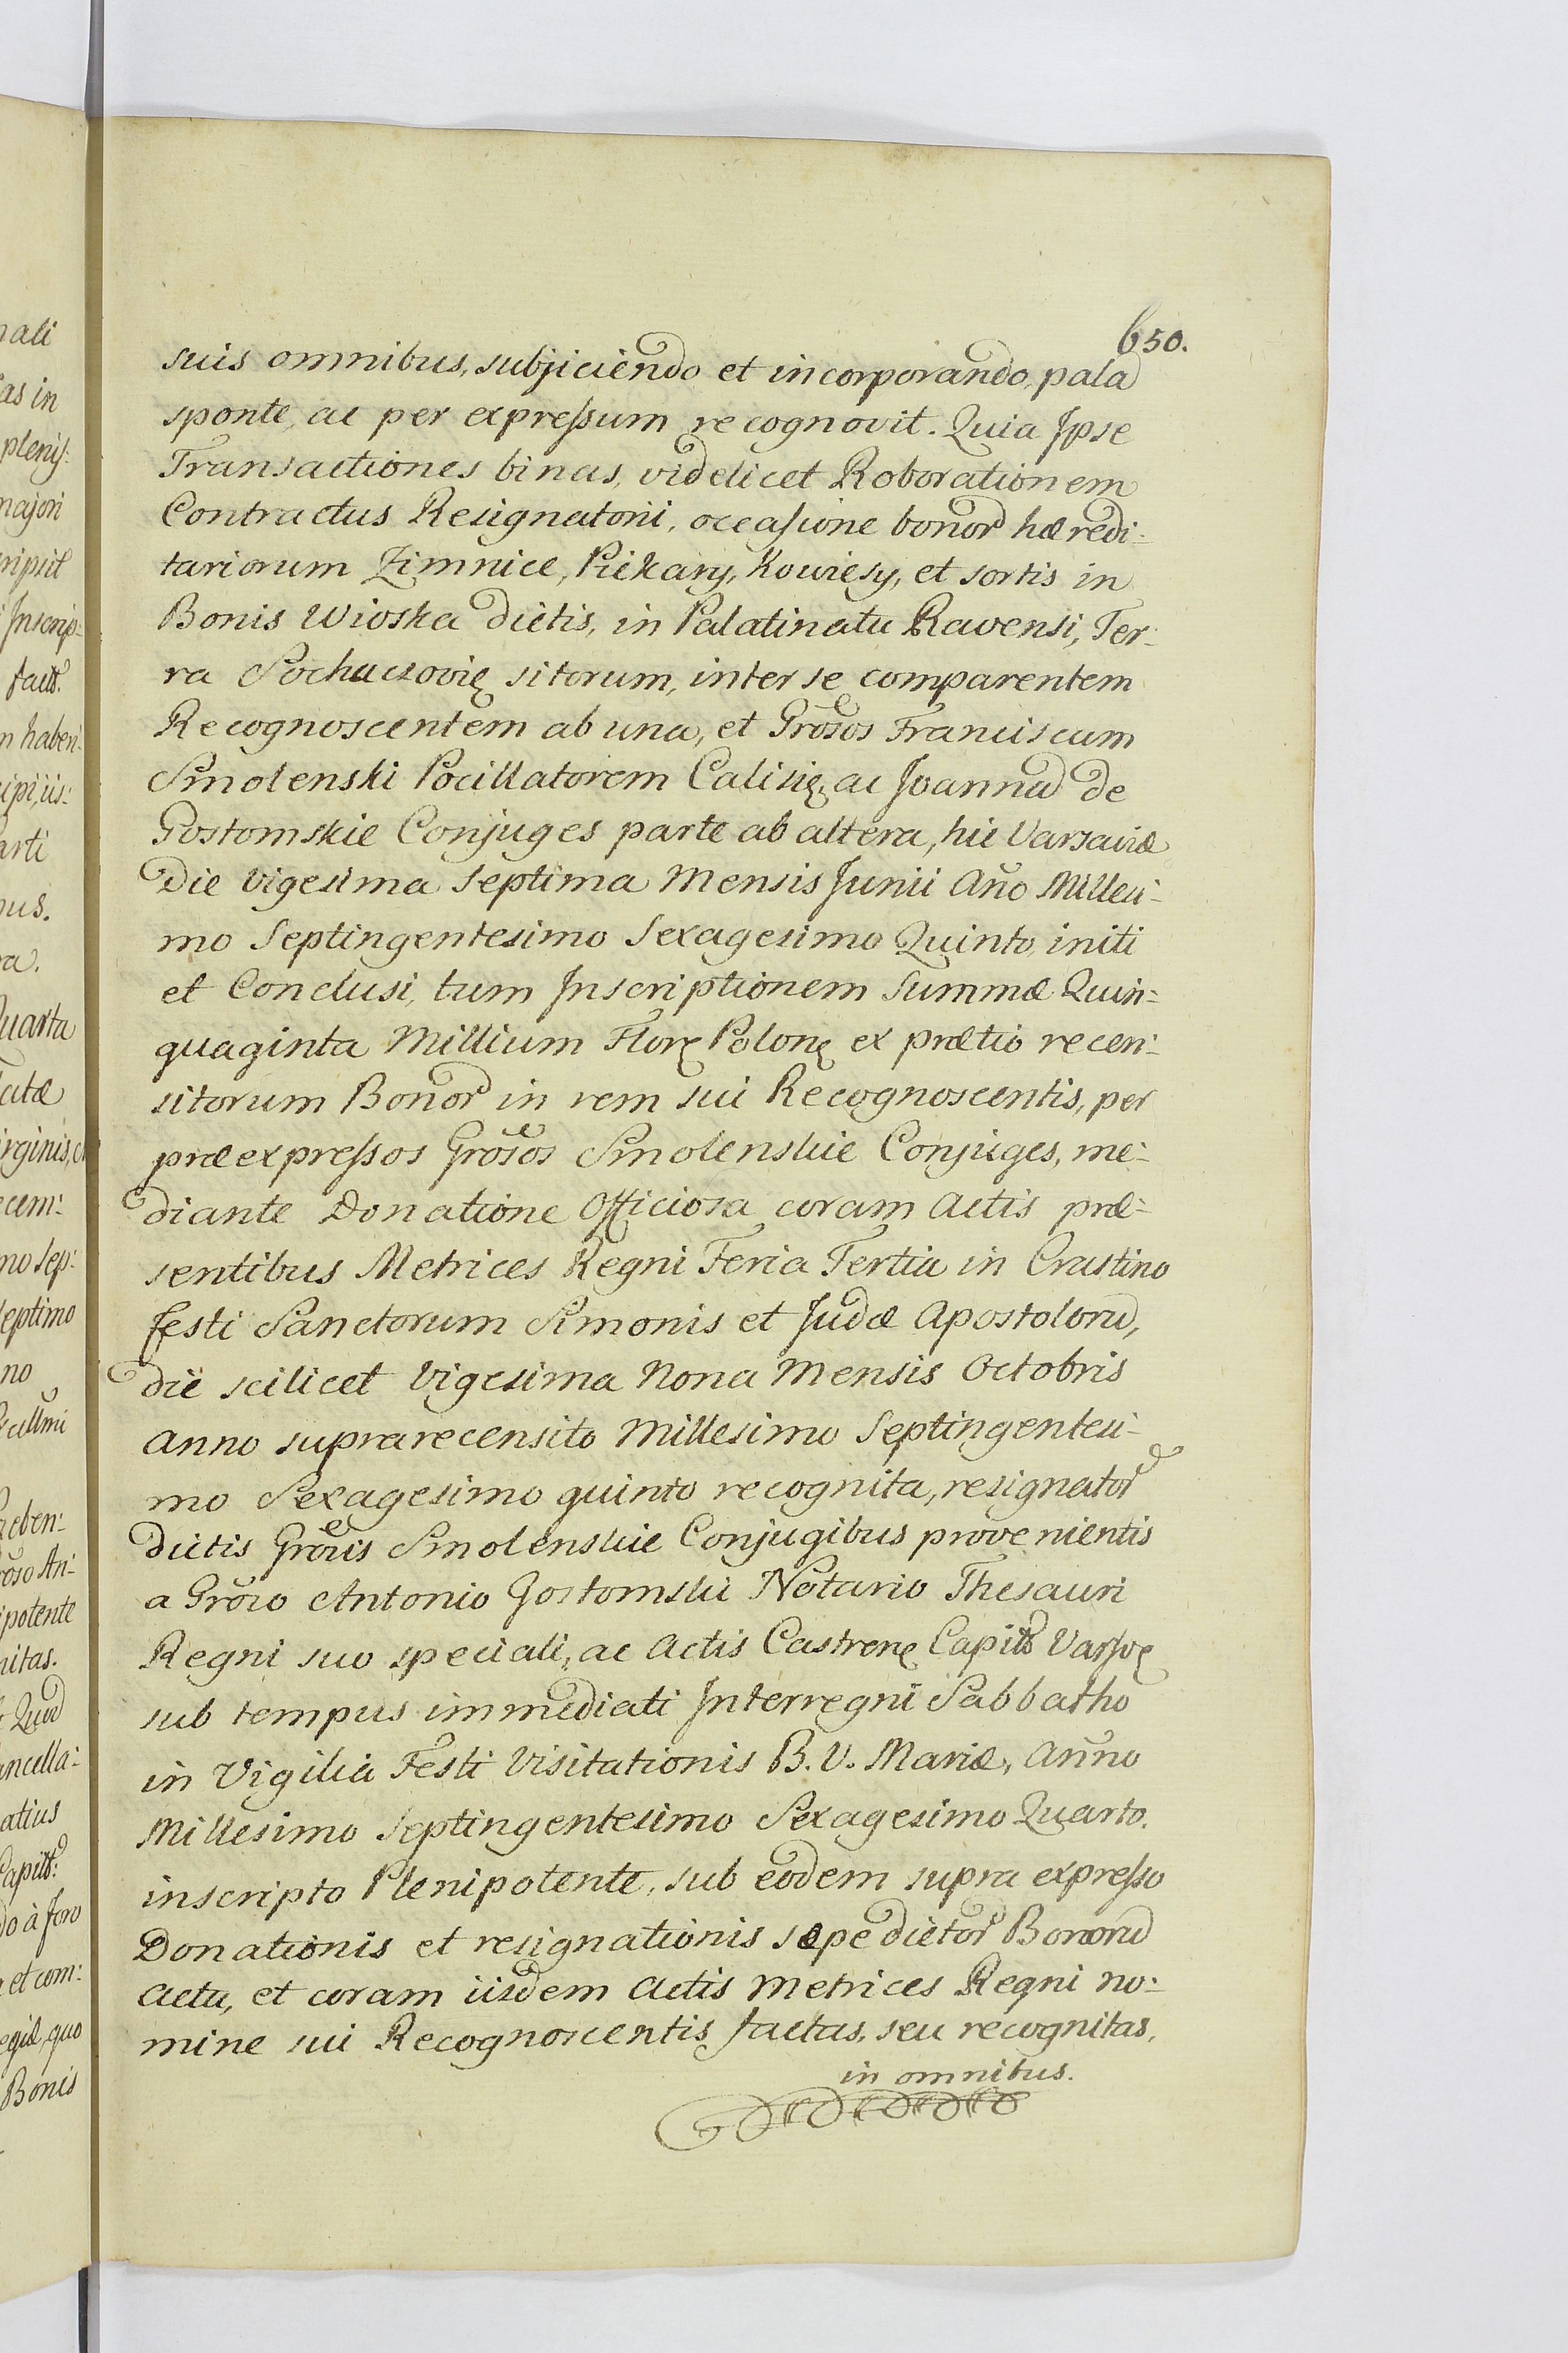 650.
suis omnibus, subjiciendo et incorporando, pala
sponte, ac per expreſsum recognovit. Quia Ipse
Transactiones binas, videlicet Roborationem
Contractus Resignatorii, occaſione bonor hæredi-
tariorum Zimnice, Piekary, Kowiesy, et sortis in
Bonis Wioska dictis, in Palatinatu Ravensi, Ter-
ra Sochaczovię sitorum, inter se comparentem
Recognoscentem ab una, et Grosos Franciscum
Smolenski Pocillatorem Calisię, ac Joannã de
Gostomskie Conjuges parte ab altera, hic Varsaviæ
Die Vigesima Septima Mensis Junii Año Millesi-
mo Septingentesimo Sexagesimo Quinto, initi
et Conclusi, tum Inscriptionem Summæ Quin-
quaginta Millium Florę Polonę ex prætio recen-
sitorum Bonor in rem sui Recognoscentis, per
præexpreſsos Grosos Smolenskie Conjuges, me-
diante Donatione Officiosa coram Actis præ-
sentibus Metrices Regni Feria Tertia in Crastino
festi Sanctorum Simonis et Judæ Apostolorũ,
die scilicet Vigesima Nona Mensis Octobris
Anno suprarecensito Millesimo Septingentesi-
mo Sexagesimo quinto recognita, resignator
dictis Grosis Smolenskie Conjugibus provenientis
a Groso Antonio Gostomski Notario Thesauri
Regni suo speciali, ac Actis Castrenę Capitł Varsvę
sub tempus immediati Interregni Sabbatho
in Vigilia Festi Visitationis B. V. Mariæ, Anno
Millesimo Septingentesimo Sexagesimo Quarto.
inscripto Plenipotente, sub eodem supra expreſso
Donationis et resignationis sæpe dictor Bonorũ
Actu, et coram iisdem Actis Metrices Regni no-
mine sui Recognoscentis factas, seu recognitas,
in omnibus.